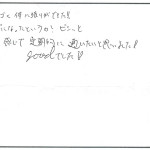 体に張りがでた!!
になったというか!ピシっと
感じで定期的に通いたいと思いました!
goodでした!